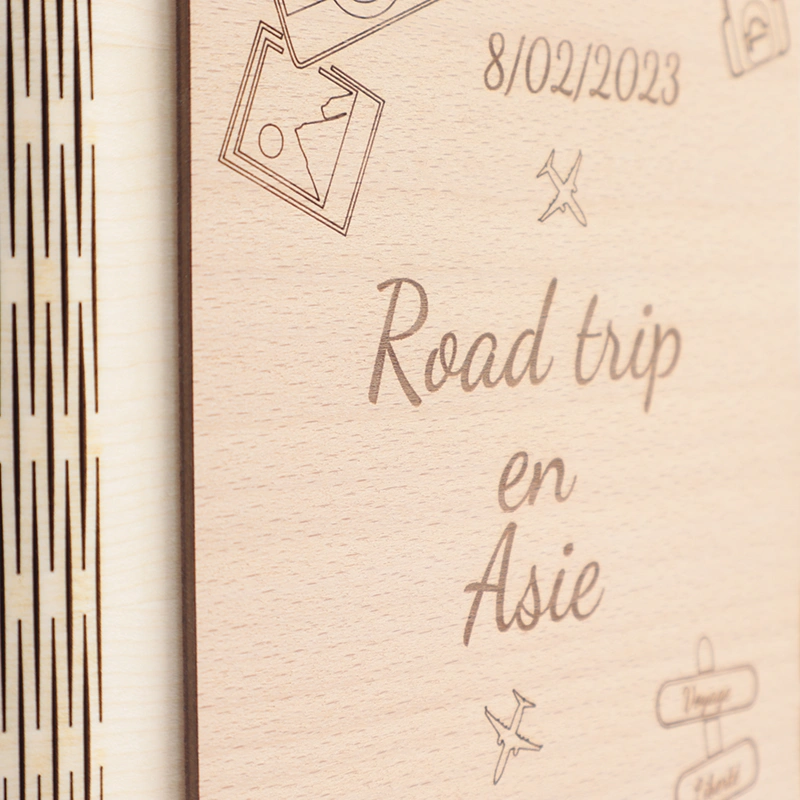 8/02/2023
Road trip
en
Asie
Voyage
Liberté